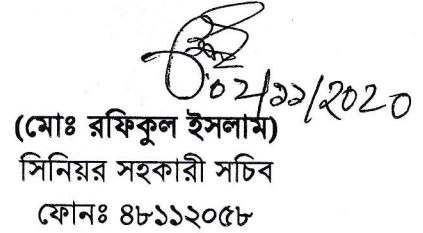 ০২/১১/২০২০
(মোঃ রফিকুল ইসলাম)
সিনিয়র সহকারী সচিব
ফোনঃ ৪৮১১২০৫৮